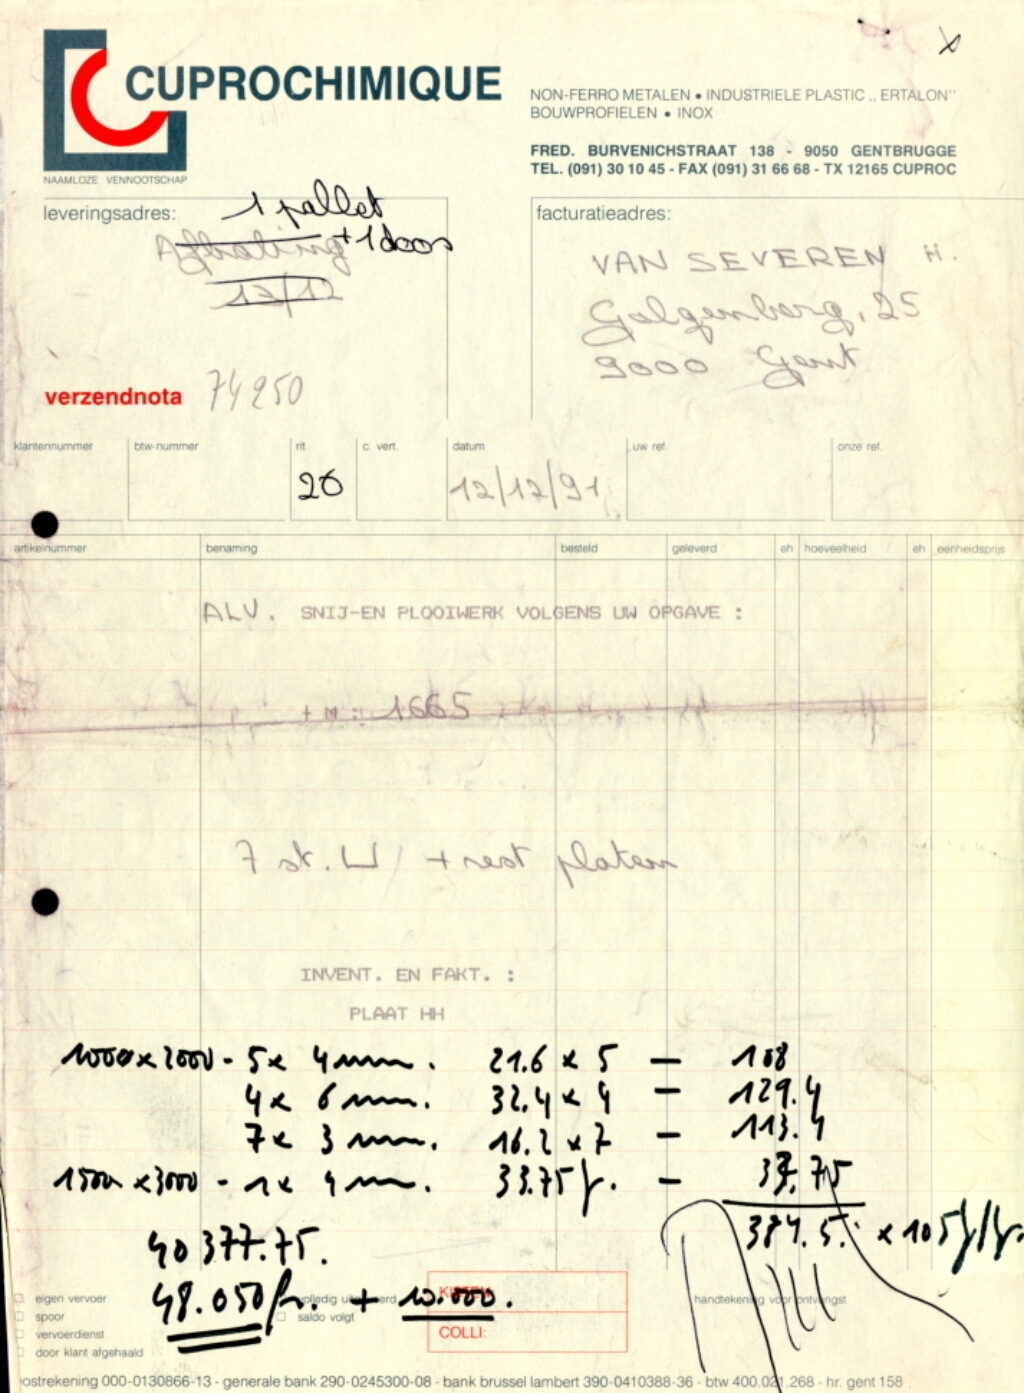 CUPROCHIMIQUE
NAAMLOZE VENNOOTSCHAP
NON-FERRO METALEN • INDUSTRIELE PLASTIC „ ERTALON"
BOUWPROFIELEN • INOX
FRED. BURVENICHSTRAAT 138 - 9050 GENTBRUGGE
TEL. (091) 30 10 45 - FAX (091) 31 66 68 - TX 12165 CUPROC
leveringsadres:
1 pallet
Afhaling + 1 doos
17/12
facturatieadres:
VAN SEVEREN H.
Galgenberg, 25
9000 Gent
verzendnota 74250
klantennummer btw-nummer rit c. vert. datum uw ref. onze ref.
26 12/12/91
artikelnummer benaming besteld geleverd eh hoeveelheid eh eenheidsprijs
ALU. SNIJ-EN PLOOIWERK VOLGENS UW OPGAVE :
1665
7 st. + rest platen
INVENT. EN FAKT. :
PLAAT HH
1000 x 2000 - 5x 4 mm. 21.6 x 5 — 108
4x 6 mm. 32.4 x 4 — 129.4
7x 3 mm. 16.2 x 7 — 113.4
1500 x 3000 - 1x 4 mm. 33.75 - 33.75
384.5. x 105
40377.75.
48.050 fr. + 10.000.
eigen vervoer
spoor
vervoerdienst
door klant afgehaald
saldo volgt
COLLI:
handtekening voor ontvangst
postrekening 000-0130866-13 - generale bank 290-0245300-08 - bank brussel lambert 390-0410388-36 - btw 400.021.268 - hr. gent 158